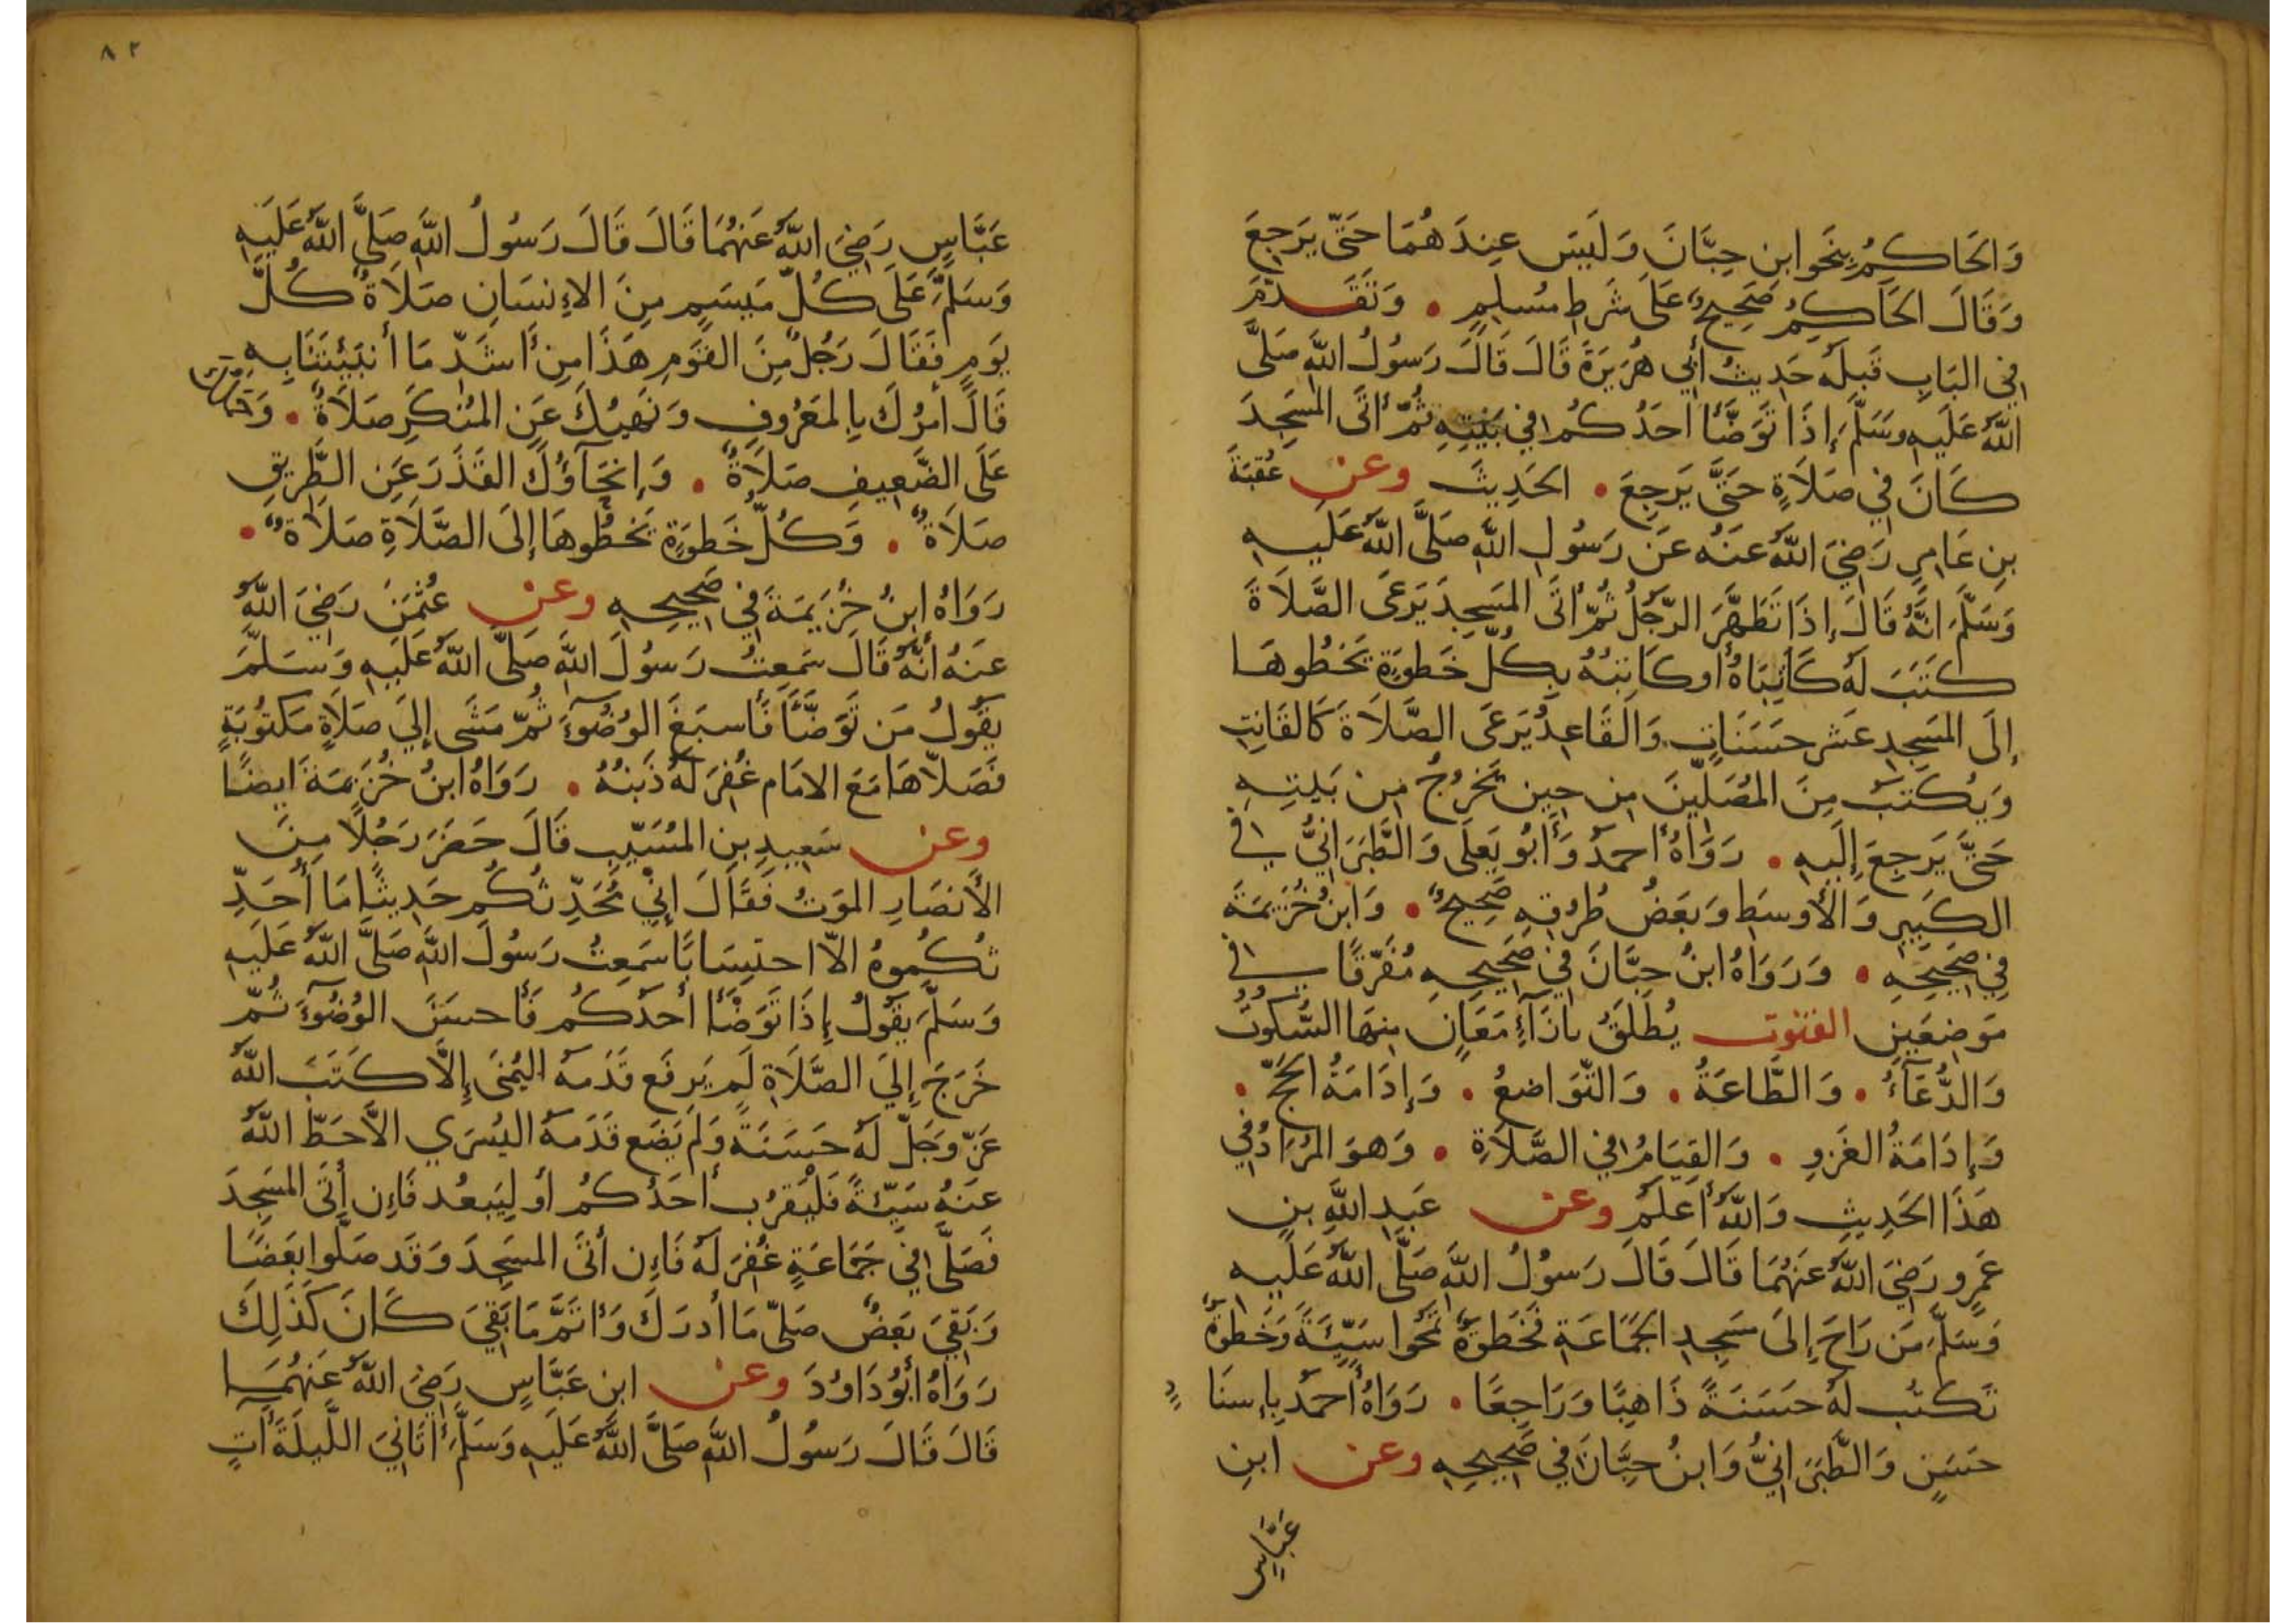 وَالحَاكِمُ بِنَحوِ ابن حِبَّانَ وَلَيسَ عِندَهُمَا حَتَّى يَرجِعَ
وَقَالَ الحَاكِمُ صَحِيحٌ عَلَى شَرطِ مُسلِمٍ . وَتَقَدَّمَ
فِي البَابِ قَبلَهُ حَدِيثُ أبِي هُرَيرَةَ قَالَ قَالَ رَسُولُ اللَّهِ صَلَّى
اللَّهُ عَلَيهِ وَسَلَّمَ إِذَا تَوَضَّأَ أحَدُكُم فِي بَيتِهِ ثُمَّ أتَى المَسجِدَ
كَانَ فِي صَلَاةٍ حَتَّى يَرجِعَ . الحَدِيثَ وعن عُقبَةَ
بنِ عَامِرٍ رَضِيَ اللَّهُ عَنهُ عَن رَسُولِ اللَّهِ صَلَّى اللَّهُ عَلَيهِ
وَسَلَّمَ انَّهُ قَالَ إِذَا تَطَهَّرَ الرَّجُلُ ثُمَّ أتَى المَسجِدَ يَرعَى الصَّلَاةَ
كَتَبَ لَهُ كَاتِبَاهُ أو كَاتِبُهُ بِكُلِّ خَطوَةٍ يَخطُوهَا
إِلَى المَسجِدِ عَشرَ حَسَنَاتٍ وَالقَاعِدُ يَرعَى الصَّلَاةَ كَالقَانِتِ
وَيُكتَبُ مِنَ المُصَلِّينَ مِن حِينِ يَخرُجُ مِن بَيتِهِ
حَتَّى يَرجِعَ إِلَيهِ . رَوَاهُ أحمَدُ وَأبُو يَعلَى وَالطَّبَرَانِيُّ فِي
الكَبِيرِ وَالأَوسَطِ وَبَعضُ طُرُقِهِ صَحِيحٌ . وَابنُ خُزَيمَةَ
فِي صَحِيحِهِ . وَرَوَاهُ ابنُ حِبَّانَ فِي صَحِيحِهِ مُفَرَّقًا فِي
مَوضِعَينِ القنوت يُطلَقُ بِازَاءِ مَعَانٍ مِنهَا السُّكُوتُ
وَالدُّعَآءُ . وَالطَّاعَةُ . وَالتَّوَاضعُ . وَإِدَامَةُ الحَجِّ .
وَإِدَامَةُ الغَزوِ . وَالقِيَامُ فِي الصَّلَاةِ . وَهوَ المُرَادُ فِي
هَذَا الحَدِيثِ وَاللَّهُ أعلَمُ وعن عَبدِ اللَّهِ بنِ
عَمرٍو رَضِيَ اللَّهُ عَنهُمَا قَالَ قَالَ رَسُولُ اللَّهِ صَلَّى اللَّهُ عَلَيهِ
وَسَلَّمَ مَن رَاحَ إِلَى مَسجِدِ الجَمَاعَةِ فَخَطوَةٌ تَمحُوا سَيِّئَةً وَخَطوَةٌ
تُكتَبُ لَهُ حَسَنَةً ذَاهِبًا وَرَاجِعًا . رَوَاهُ أحمَدُ بِإِسنَادٍ
حَسَنٍ وَالطَّبَرَانِيُّ وَابنُ حِبَّانَ فِي صَحِيحِهِ وعن ابنِ
عَبَّاسٍ
٨٢
عَبَّاسٍ رَضِيَ اللَّهُ عَنهُمَا قَالَ قَالَ رَسُولُ اللَّهِ صَلَّى اللَّهُ عَلَيهِ
وَسَلَّمَ عَلَى كُلِّ مَيسَمٍ مِنَ الإِنسَانِ صَلَاةٌ كُلَّ
يَومٍ فَقَالَ رَجُلٌ مِنَ القَومِ هَذَا مِن أَشَدِّ مَا أنبَئتَنَا بِهِ
قَالَ أمرُكَ بِالمَعرُوفِ وَنَهيُكَ عَنِ المُنكَرِ صَلَاةٌ .
عَلَى الضَّعِيفِ صَلَاةٌ . وَإِنحَآؤُكَ القَذَرَ عَنِ الطَّرِيقِ
صَلَاةٌ . وَكُلُّ خَطوَةٍ تَخطُوهَا إِلَى الصَّلَاةِ صَلَاةٌ .
رَوَاهُ ابنُ خُزَيمَةَ فِي صَحِيحِهِ وعن عُثمَنَ رَضِيَ اللَّهُ
عَنهُ أنَّهُ قَالَ سَمِعتُ رَسُولَ اللَّهِ صَلَّى اللَّهُ عَلَيهِ وَسَلَّمَ
يَقُولُ مَن تَوَضَّأَ فَأَسبَغَ الوُضُوءَ ثُمَّ مَشَى إِلَى صَلَاةٍ مَكتُوبَةٍ
فَصَلَّاهَا مَعَ الامَامِ غُفِرَ لَهُ ذَنبُهُ . رَوَاهُ ابنُ خُزَيمَةَ ايضًا
وعن سَعِيدِ بنِ المُسَيِّبِ قَالَ حَضَرَ رَجُلًا مِنَ
الأَنصَارِ المَوتُ فَقَالَ إِنِّي مُحَدِّثُكُم حَدِيثًا مَا أُحَدِّ
ثُكُمُوهُ الَّا احتِسَابًا سَمِعتُ رَسُولَ اللَّهِ صَلَّى اللَّهُ عَلَيهِ
وَسَلَّمَ يَقُولُ إِذَا تَوَضَّأَ أحَدُكُم فَأَحسَنَ الوُضُوءَ ثُمَّ
خَرَجَ إِلَى الصَّلَاةِ لَم يَرفَع قَدَمَهُ اليُمنَى إِلَّا كَتَبَ اللَّهُ
عَزَّ وَجَلَّ لَهُ حَسَنَةً وَلَم يَضَع قَدَمَهُ اليُسرَي الَّا حَطَّ اللَّهُ
عَنهُ سَيِّئَةً فَليَقرُب أحَدُكُم أو لِيَبعُد فَإِن أتَى المَسجِدَ
فَصَلَّى فِي جَمَاعَةٍ غُفِرَ لَهُ فَإِن أتَى المَسجِدَ وَقَد صَلَّوا بَعضًا
وَبَقِيَ بَعضٌ صَلَّى مَا أدرَكَ وَأتَمَّ مَا بَقِيَ كَانَ كَذَلِكَ
رَوَاهُ أبُو دَاوُدَ وعن ابنِ عَبَّاسٍ رَضِيَ اللَّهُ عَنهُمَا
قَالَ قَالَ رَسُولُ اللَّهِ صَلَّى اللَّهُ عَلَيهِ وَسَلَّمَ أتَانِيَ اللَّيلَةَ آتٍ